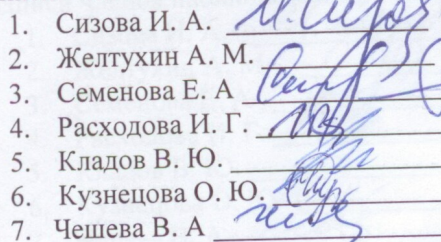 1. Сизова И. А.
2. Желтухин А. М.
3. Семенова Е. А
4. Расходова И. Г.
5. Кладов В. Ю.
6. Кузнецова О. Ю.
7. Чешева В. А